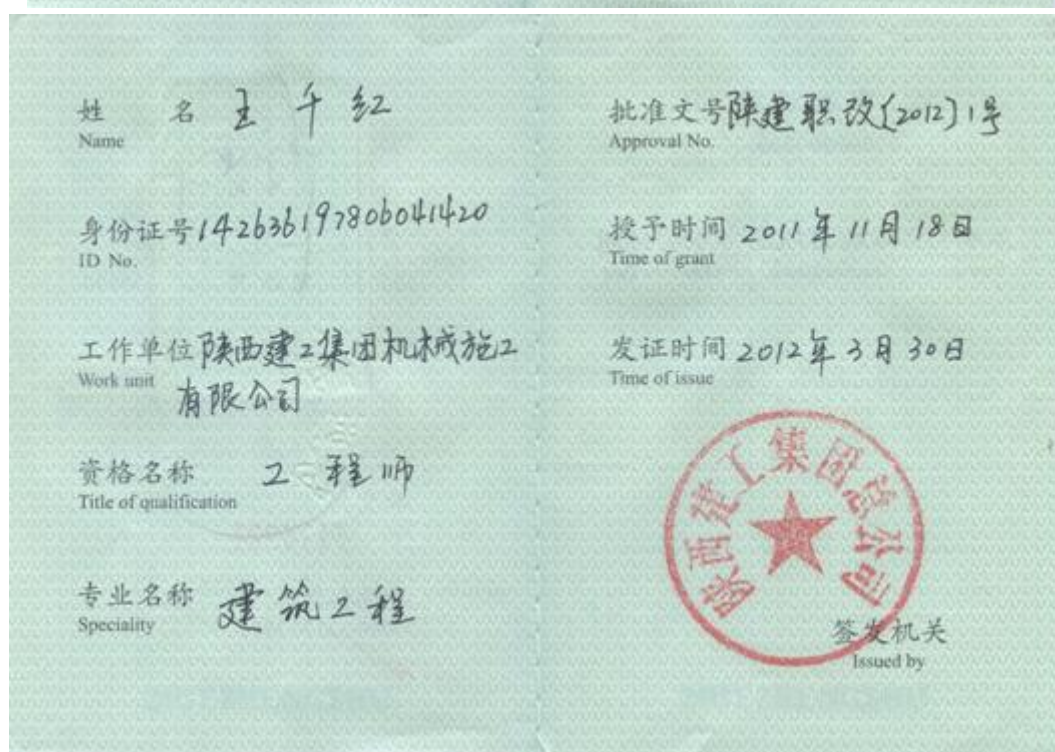 姓 名 王千红
Name
身份证号142636197806041420
ID No.
工作单位陕西建工集团机械施工
Work unit
有限公司
资格名称 工程师
Title of qualification
专业名称 建筑工程
Speciality
批准文号陕建职改(2012)1号
Approval No.
授予时间 2011年11月18日
Time of grant
发证时间 2012年3月30日
Time of issue
陕西建工集团总公司
签发机关
Issued by